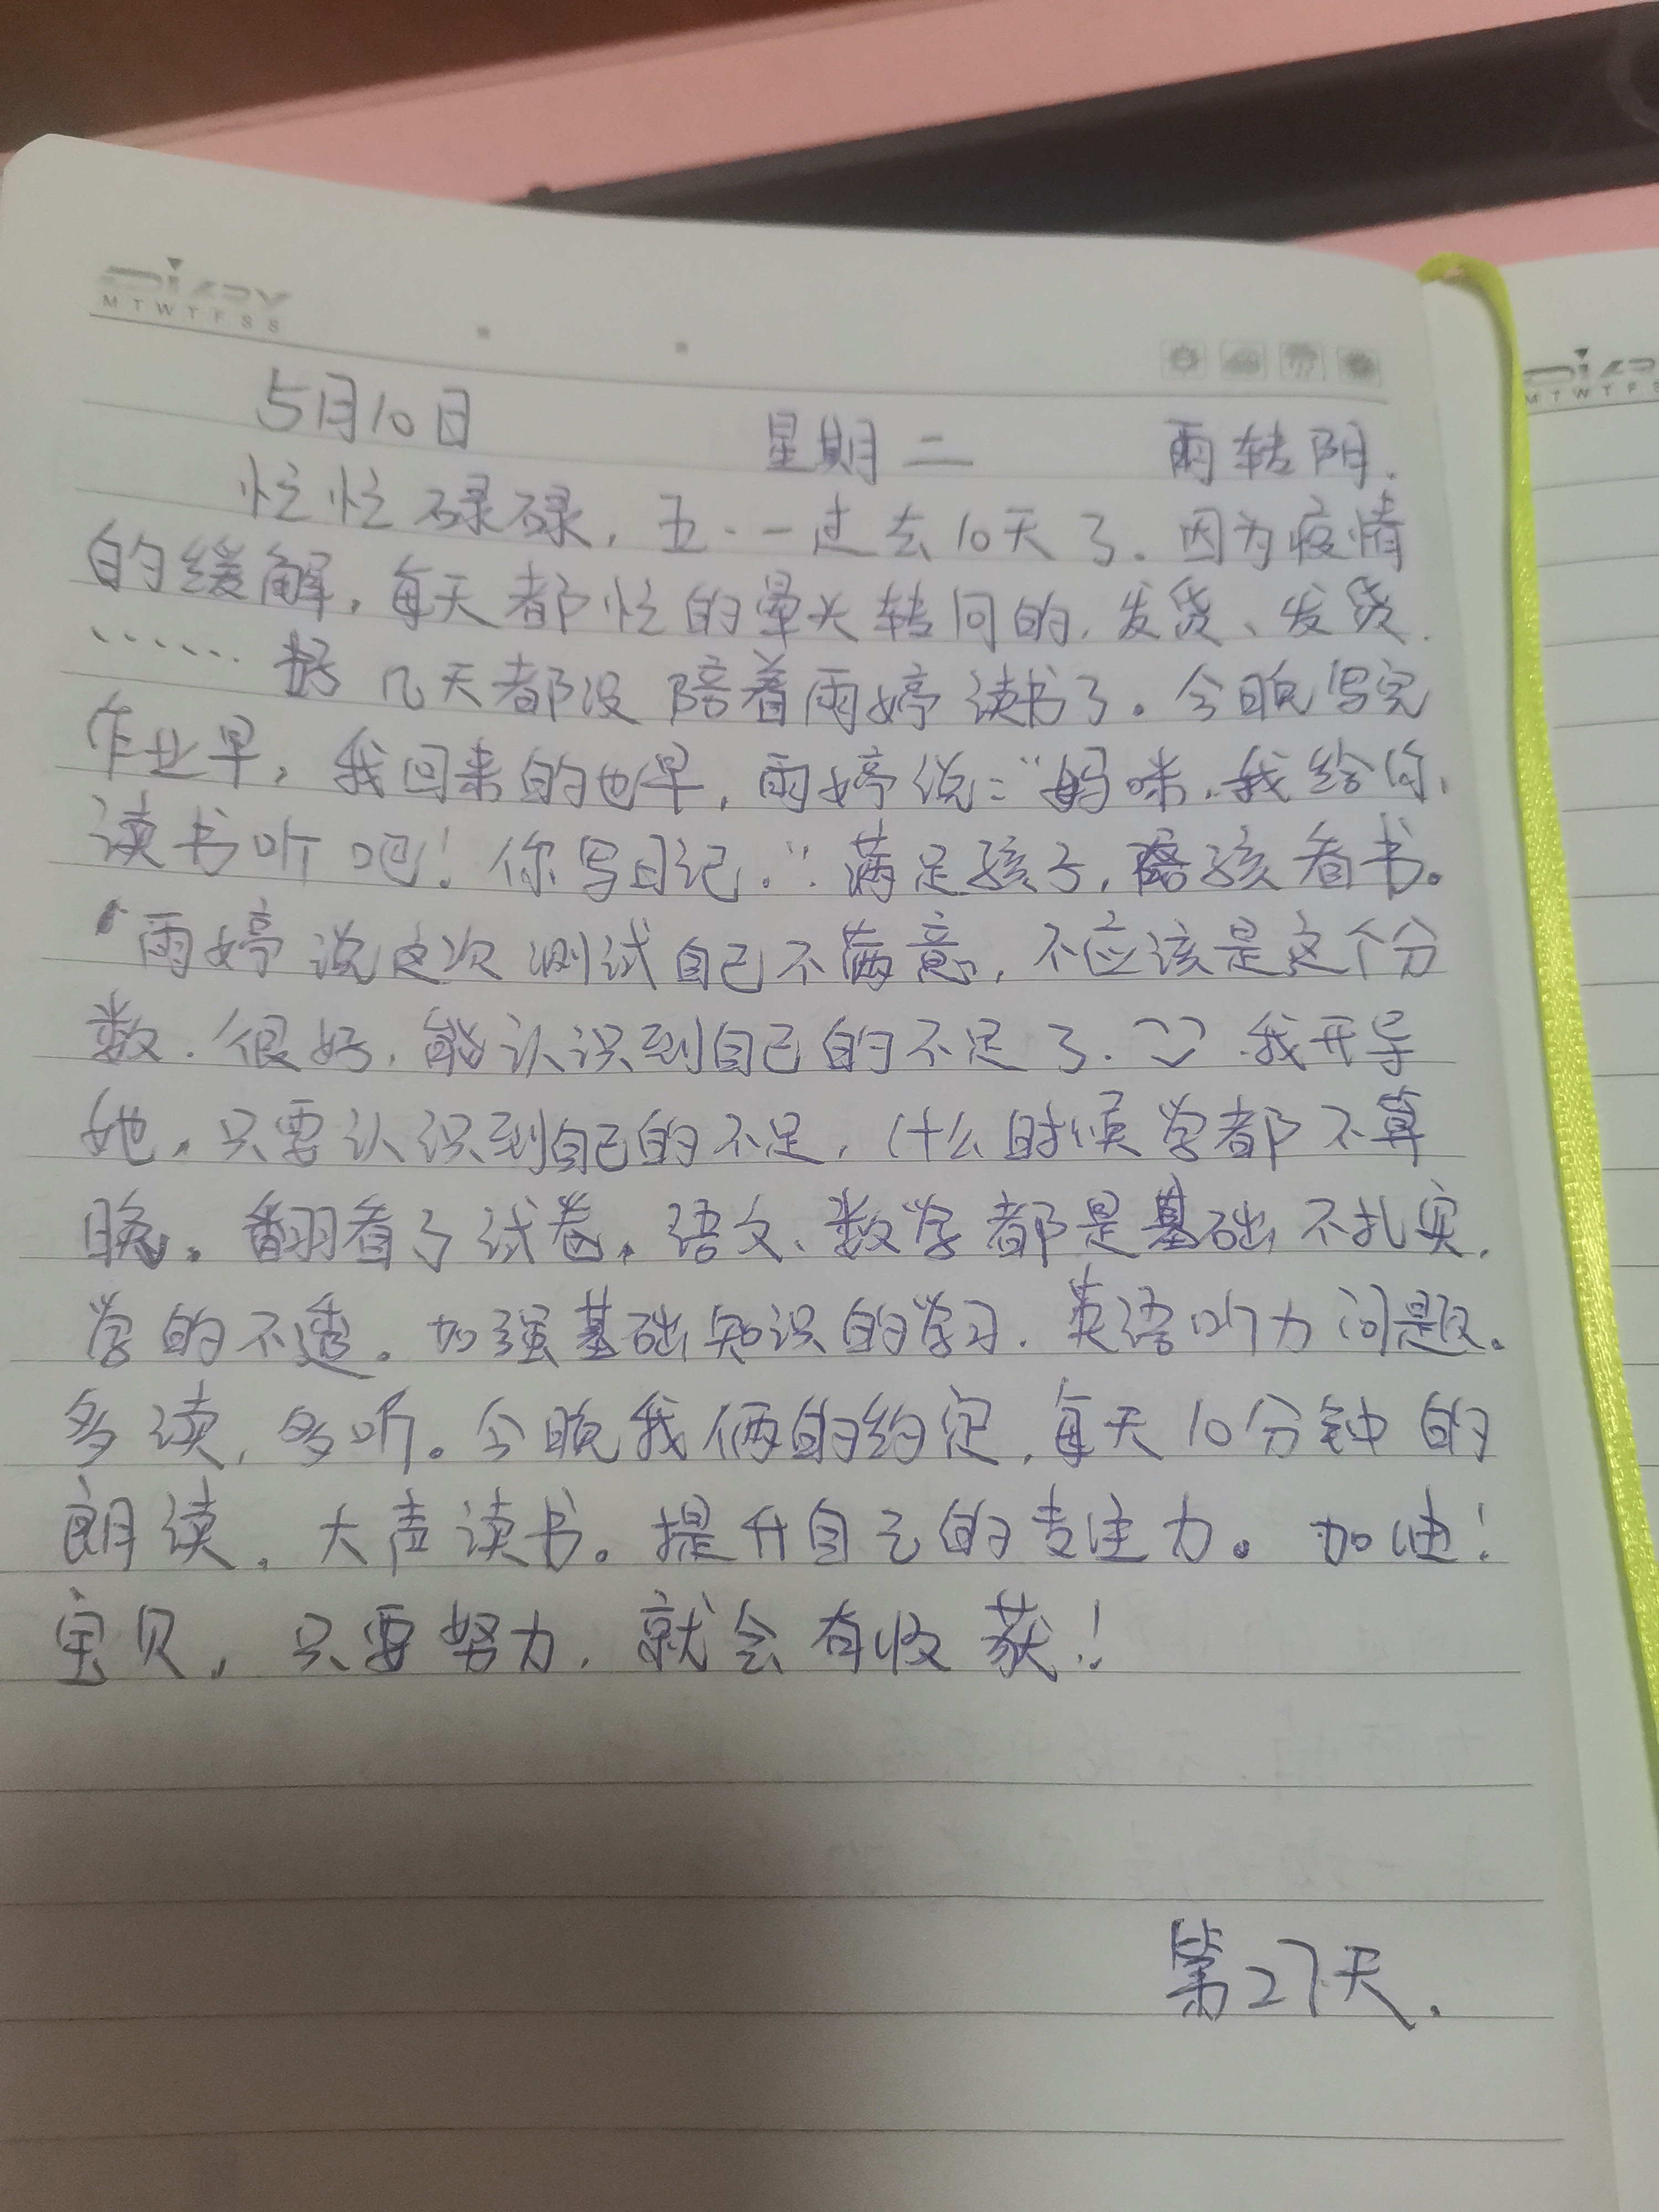 DIARY
M T W T F S S
5月10日 星期二 雨转阴.
忙忙碌碌，五·一过去10天了.因为疫情
的缓解，每天都忙的晕头转向的,发货、发货.
……好几天都没陪着雨婷读书了。今晚写完
作业早，我回来的也早，雨婷说：“妈咪，我给你
读书听吧！你写日记.”满足孩子，陪孩看书。
雨婷说这次测试自己不满意，不应该是这个分
数.很好,能认识到自己的不足了.我开导
她。只要认识到自己的不足，什么时候学都不算
晚。翻看了试卷。语文、数学都是基础不扎实.
学的不透。加强基础知识的学习.英语听力问题。
多读，多听。今晚我俩的约定，每天10分钟的
朗读。大声读书。提升自己的专注力。加油！
宝贝，只要努力，就会有收获！
第27天.
DIARY
M T W T F S